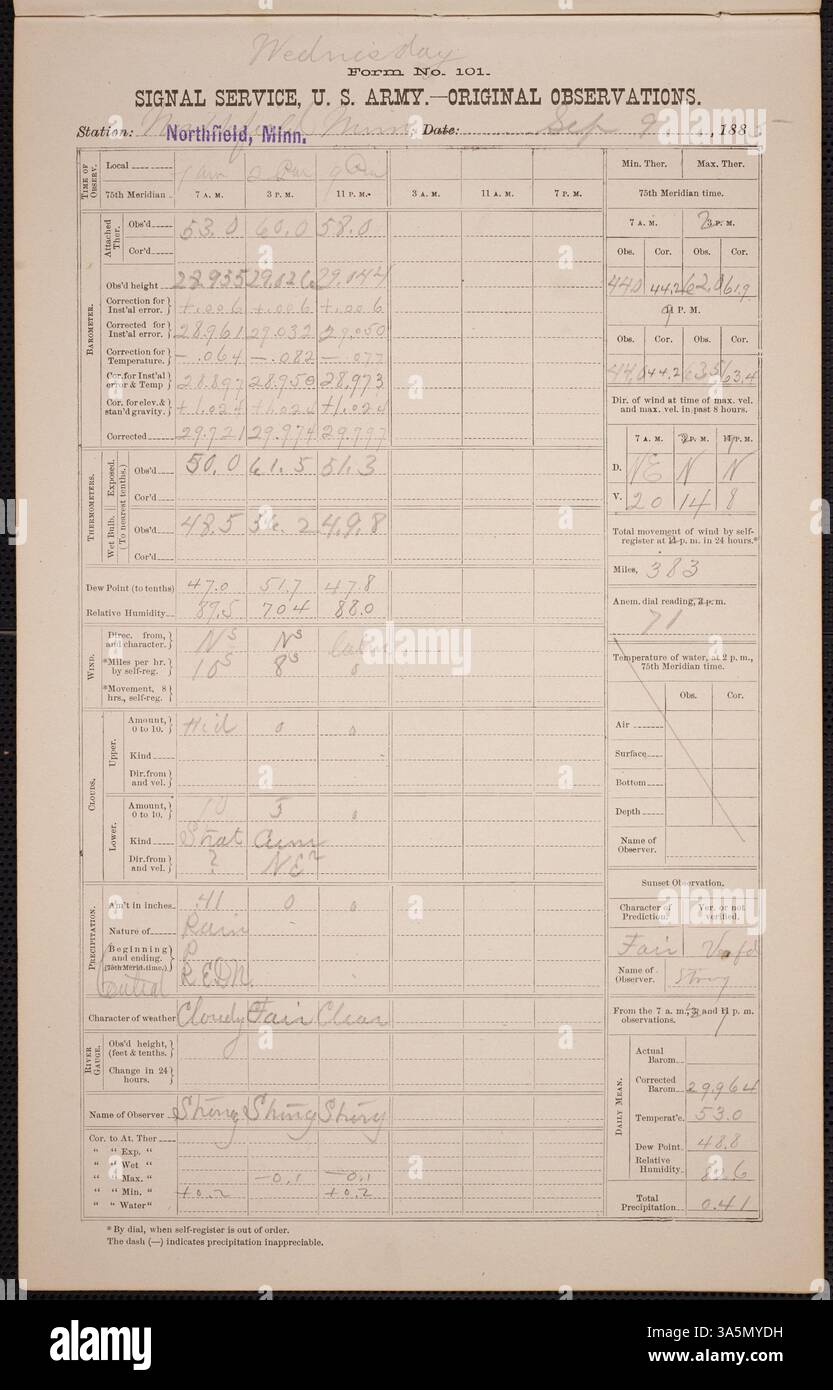 Wednesday
Form No. 101.
SIGNAL SERVICE, U. S. ARMY.—ORIGINAL OBSERVATIONS.
Station: Northfield, Minn. Date: Sep 9, 1885
TIME OF OBSERV. Local
75th Meridian 7 A. M. 3 P. M. 11 P. M. 3 A. M. 11 A. M. 7 P. M.
BAROMETER.
Attached Ther. Obs'd 53.0 60.0 58.0
Cor'd
Obs'd height 28.955 29.026 29.044
Correction for Inst'al error. +.006 +.006 +.006
Corrected for Inst'al error. 28.961 29.032 29.050
Correction for Temperature. —.064 —.082 —.077
Cor. for Inst'al error & Temp 28.897 28.950 28.973
Cor. for elev. & stan'd gravity. +1.024 +1.024 +1.024
Corrected 29.721 29.974 29.797
THERMOMETERS. (To nearest tenths.)
Exposed. Obs'd 50.0 61.5 51.3
Cor'd
Wet Bulb. Obs'd 48.5 56.2 49.8
Cor'd
Dew Point (to tenths) 47.0 51.7 47.8
Relative Humidity 89.5 70.4 88.0
WIND.
Direc. from, and character. N S N S
*Miles per hr. by self-reg. 10 S 8 S 0
*Movement, 8 hrs., self-reg.
CLOUDS.
Upper. Amount, 0 to 10. Hid 0 0
Kind
Dir. from and vel.
Lower. Amount, 0 to 10. 10 5 0
Kind Strat Cum
Dir. from and vel. ? NE
PRECIPITATION.
Am't in inches .41 0 0
Nature of Rain
Beginning and ending. (75th Merid. time.)
Central R.E.D.N.
Character of weather Cloudy Fair Clear
RIVER GAUGE.
Obs'd height, (feet & tenths.
Change in 24 hours.
Name of Observer Strong Strong Strong
Cor. to At. Ther
" " Exp. "
" " Wet "
" " Max. " —0.1 —0.1
" " Min. " +0.2 +0.2
" " Water "
* By dial, when self-register is out of order.
The dash (—) indicates precipitation inappreciable.
Min. Ther. Max. Ther.
75th Meridian time.
7 A. M. 3 P. M.
Obs. Cor. Obs. Cor.
44.0 44.2 62.0 61.9
11 P. M.
Obs. Cor. Obs. Cor.
44.0 44.2 63.5 63.4
Dir. of wind at time of max. vel. and max. vel. in past 8 hours.
7 A. M. 3 P. M. 11 P. M.
D. NE N N
V. 20 14 8
Total movement of wind by self-register at 11 p. m. in 24 hours.*
Miles, 383
Anem. dial reading, 3 p. m.
71
Temperature of water, at 2 p. m., 75th Meridian time.
Obs. Cor.
Air
Surface
Bottom
Depth
Name of Observer.
Sunset Observation.
Character of Prediction. Ver. or not verified.
Fair Verf'd
Name of Observer. Strong
From the 7 a. m., 3, and 11 p. m. observations.
DAILY MEAN.
Actual Barom.
Corrected Barom. 29.964
Temperat'e. 53.0
Dew Point. 48.8
Relative Humidity. 82.6
Total Precipitation. 0.41
alamy
Image ID: 3A5MYDH
www.alamy.com